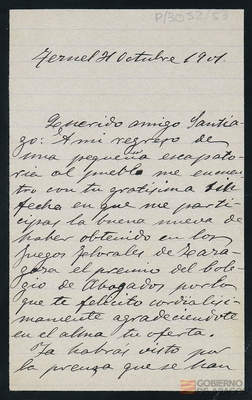 P/3052/53
Teruel 21 Octubre 1901.
Querido amigo Santia-
go: A mi regreso de
una pequeña escapato-
ria al pueblo me encuen-
tro con tu gratisima
fecha en que me parti-
cipas la buena nueva de
haber obtenido en los
Juegos Florales de Zara-
goza el premio del Cole-
gio de Abogados por lo
que te felicito cordialisi-
mamente agradeciendote
en el alma tu oferta.
Ya habrás visto por
la prensa que se han
GOBIERNO
DE ARAGON